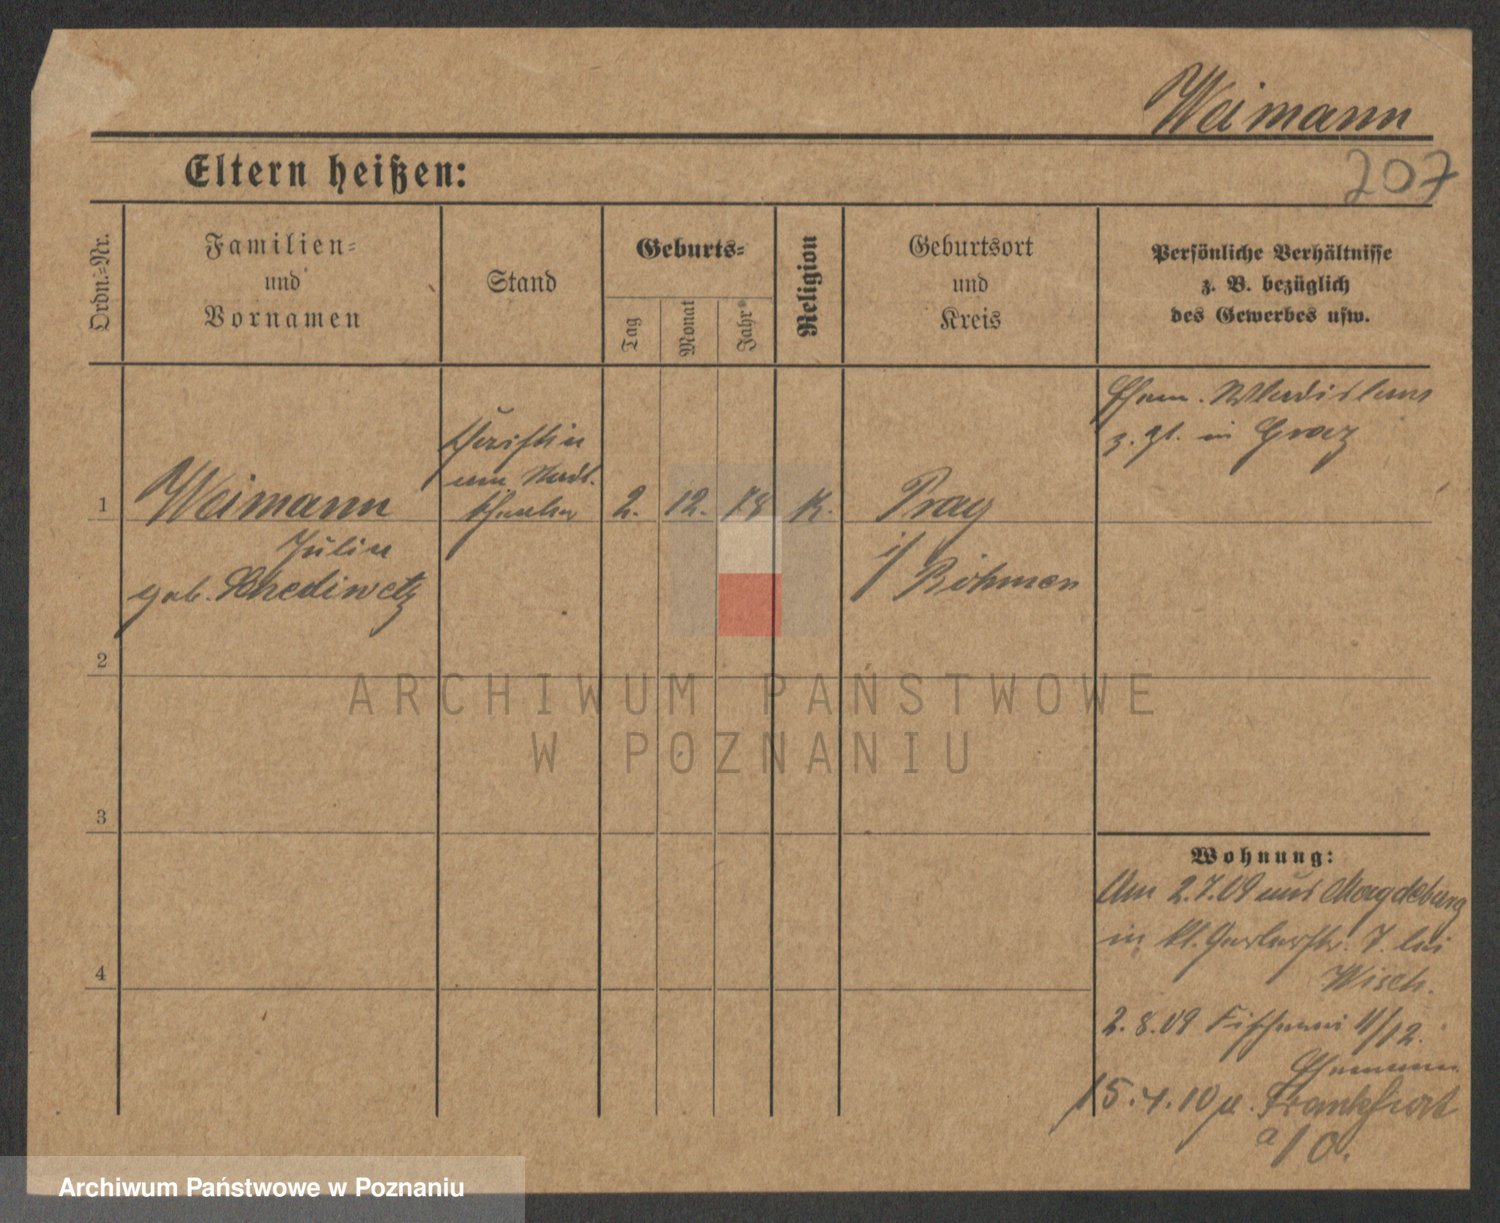 Weimann
207
Eltern heißen:
Ordn.=Nr.
Familien=
und
Vornamen
Stand
Geburts=
Tag
Monat
Jahr
Religion
Geburtsort
und
Kreis
Persönliche Verhältnisse
z. B. bezüglich
des Gewerbes usw.
Wladislaus
z. Zt. in Graz
1
Weimann
Julie
geb.
am Stadt.
Theater
2. 12. 78
K.
Prag
i/ Böhmen
2
3
4
Wohnung:
Am 2.7.09 aus Magdeburg
in kl. Gerberstr. 7. bei
Wisch.
2.8.09 Fischerei 11/12.
Ehemann
15.4.10 n. Frankfurt
a/O.
ARCHIWUM PAŃSTWOWE
W POZNANIU
Archiwum Państwowe w Poznaniu